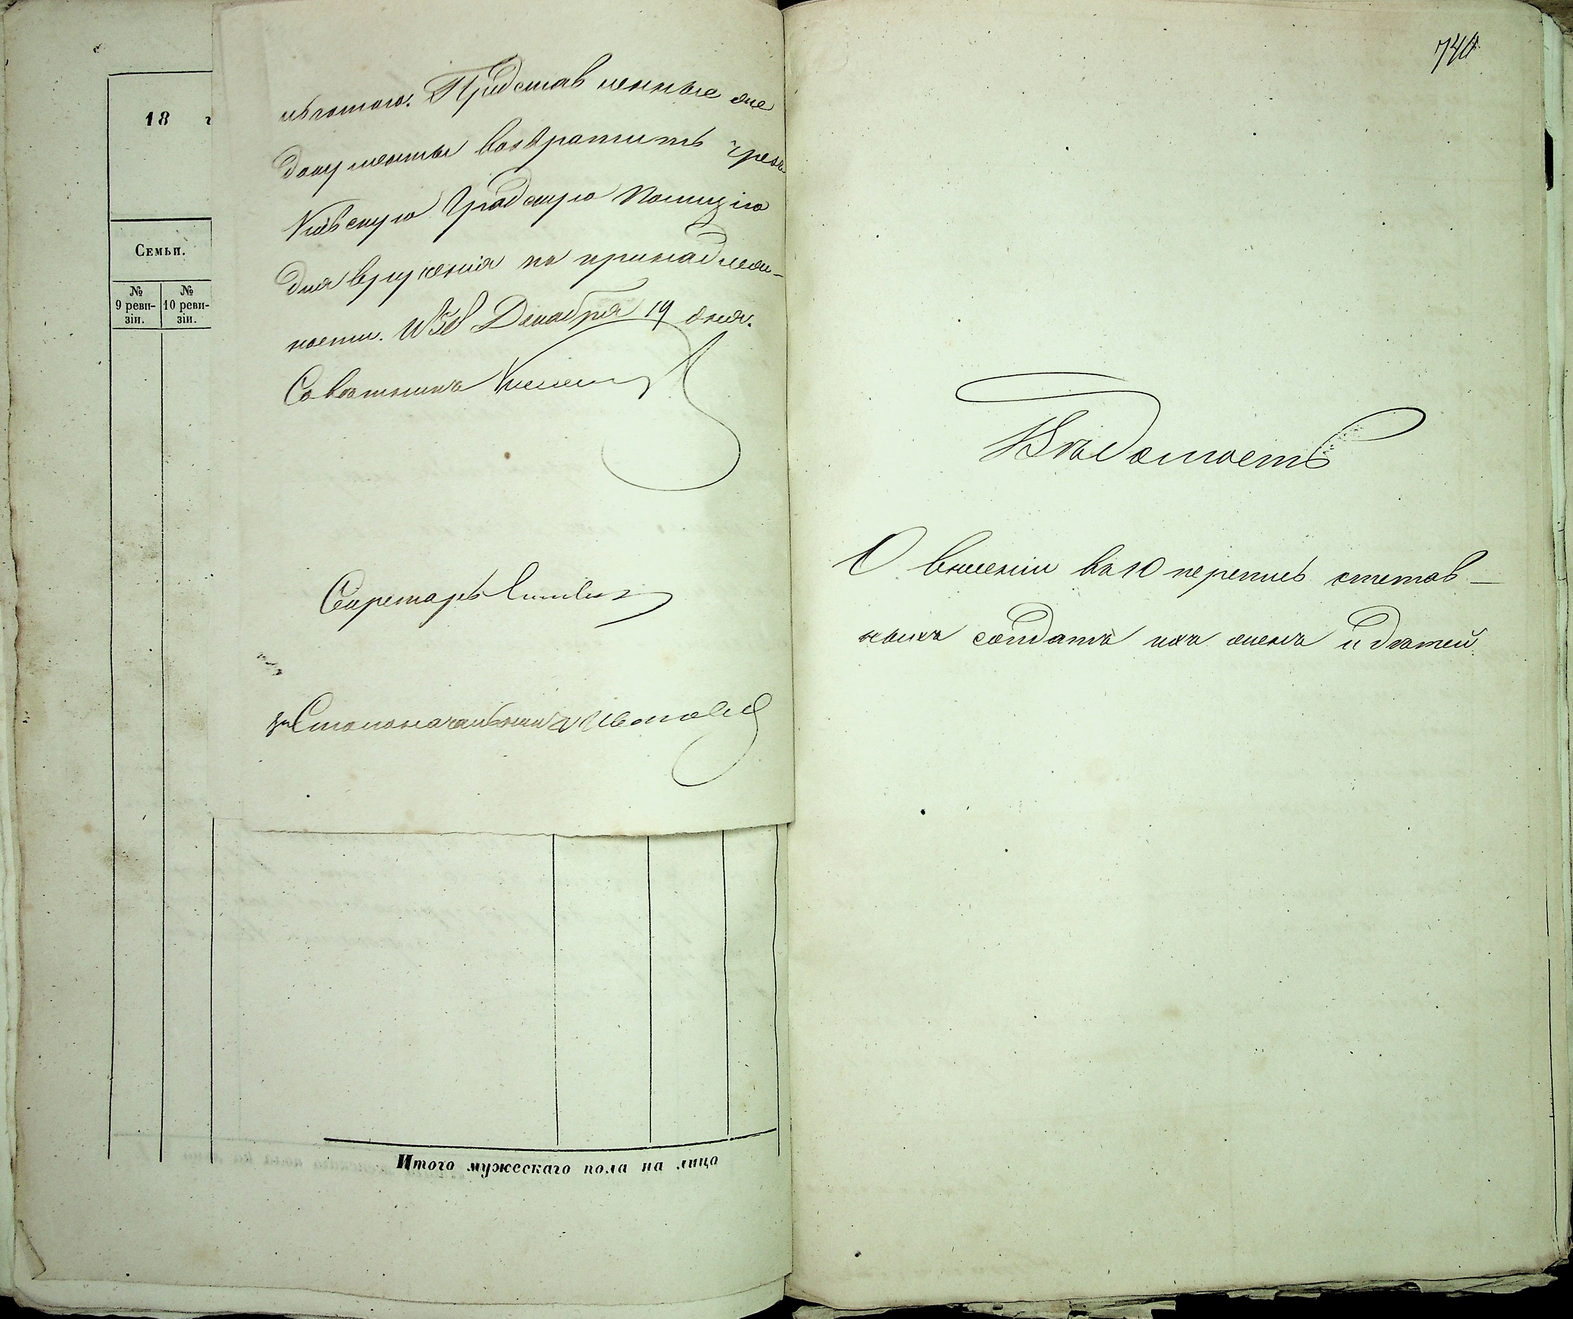 18 г
Семьи.
№ 9 реви-зіи.
№ 10 реви-зіи.
Представленные же
документы возвратить чрезъ
Кіевскую Градскую Полицію
для врученія по принадлеж-
ности. Декабря 19 дня.
Совѣтникъ
Секретарь
Столоначальника
Итого мужескаго пола на лицо
740
Вѣдомость
О внесеніи въ 10 перепись отстав-
ныхъ солдатъ ихъ женъ и дѣтей